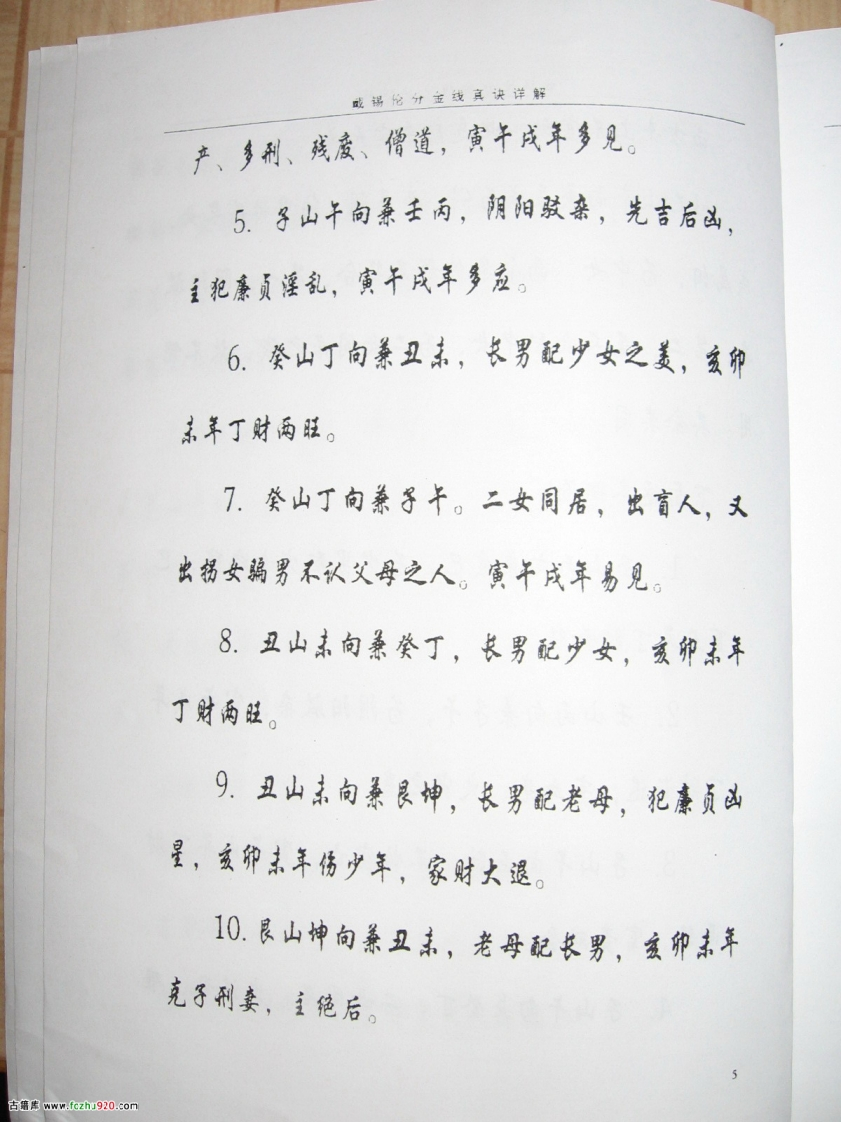 戚锡伦分金线真诀详解
产、多刑、残废、僧道，寅午戌年多见。
5. 子山午向兼壬丙，阴阳驳杂，先吉后凶，
主犯廉贞淫乱，寅午戌年多应。
6. 癸山丁向兼丑未，长男配少女之美，亥卯
未年丁财两旺。
7. 癸山丁向兼子午。二女同居，出盲人，又
出拐女骗男不认父母之人。寅午戌年易见。
8. 丑山未向兼癸丁，长男配少女，亥卯未年
丁财两旺。
9. 丑山未向兼艮坤，长男配老母，犯廉贞凶
星，亥卯未年伤少年，家财大退。
10. 艮山坤向兼丑未，老母配长男，亥卯未年
克子刑妻，主绝后。
5
古籍库 www.fczhu920.com